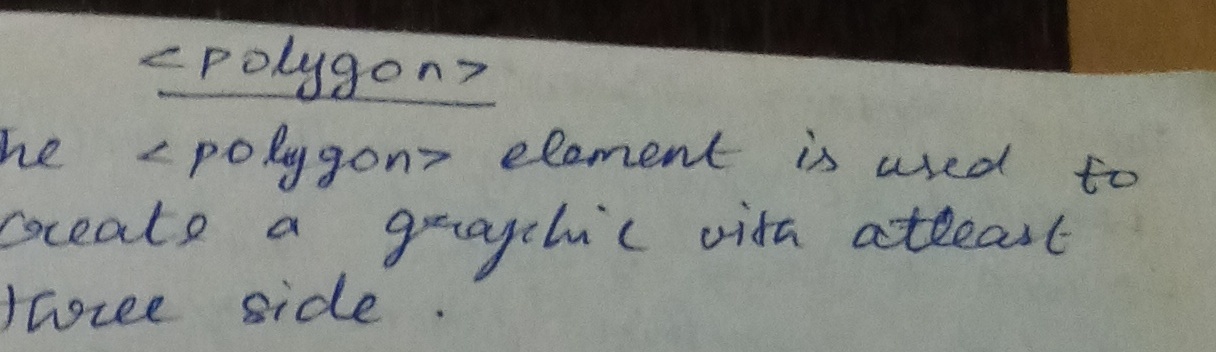 <polygon>
he <polygon> element is used to
create a graphic with atleast
three side .